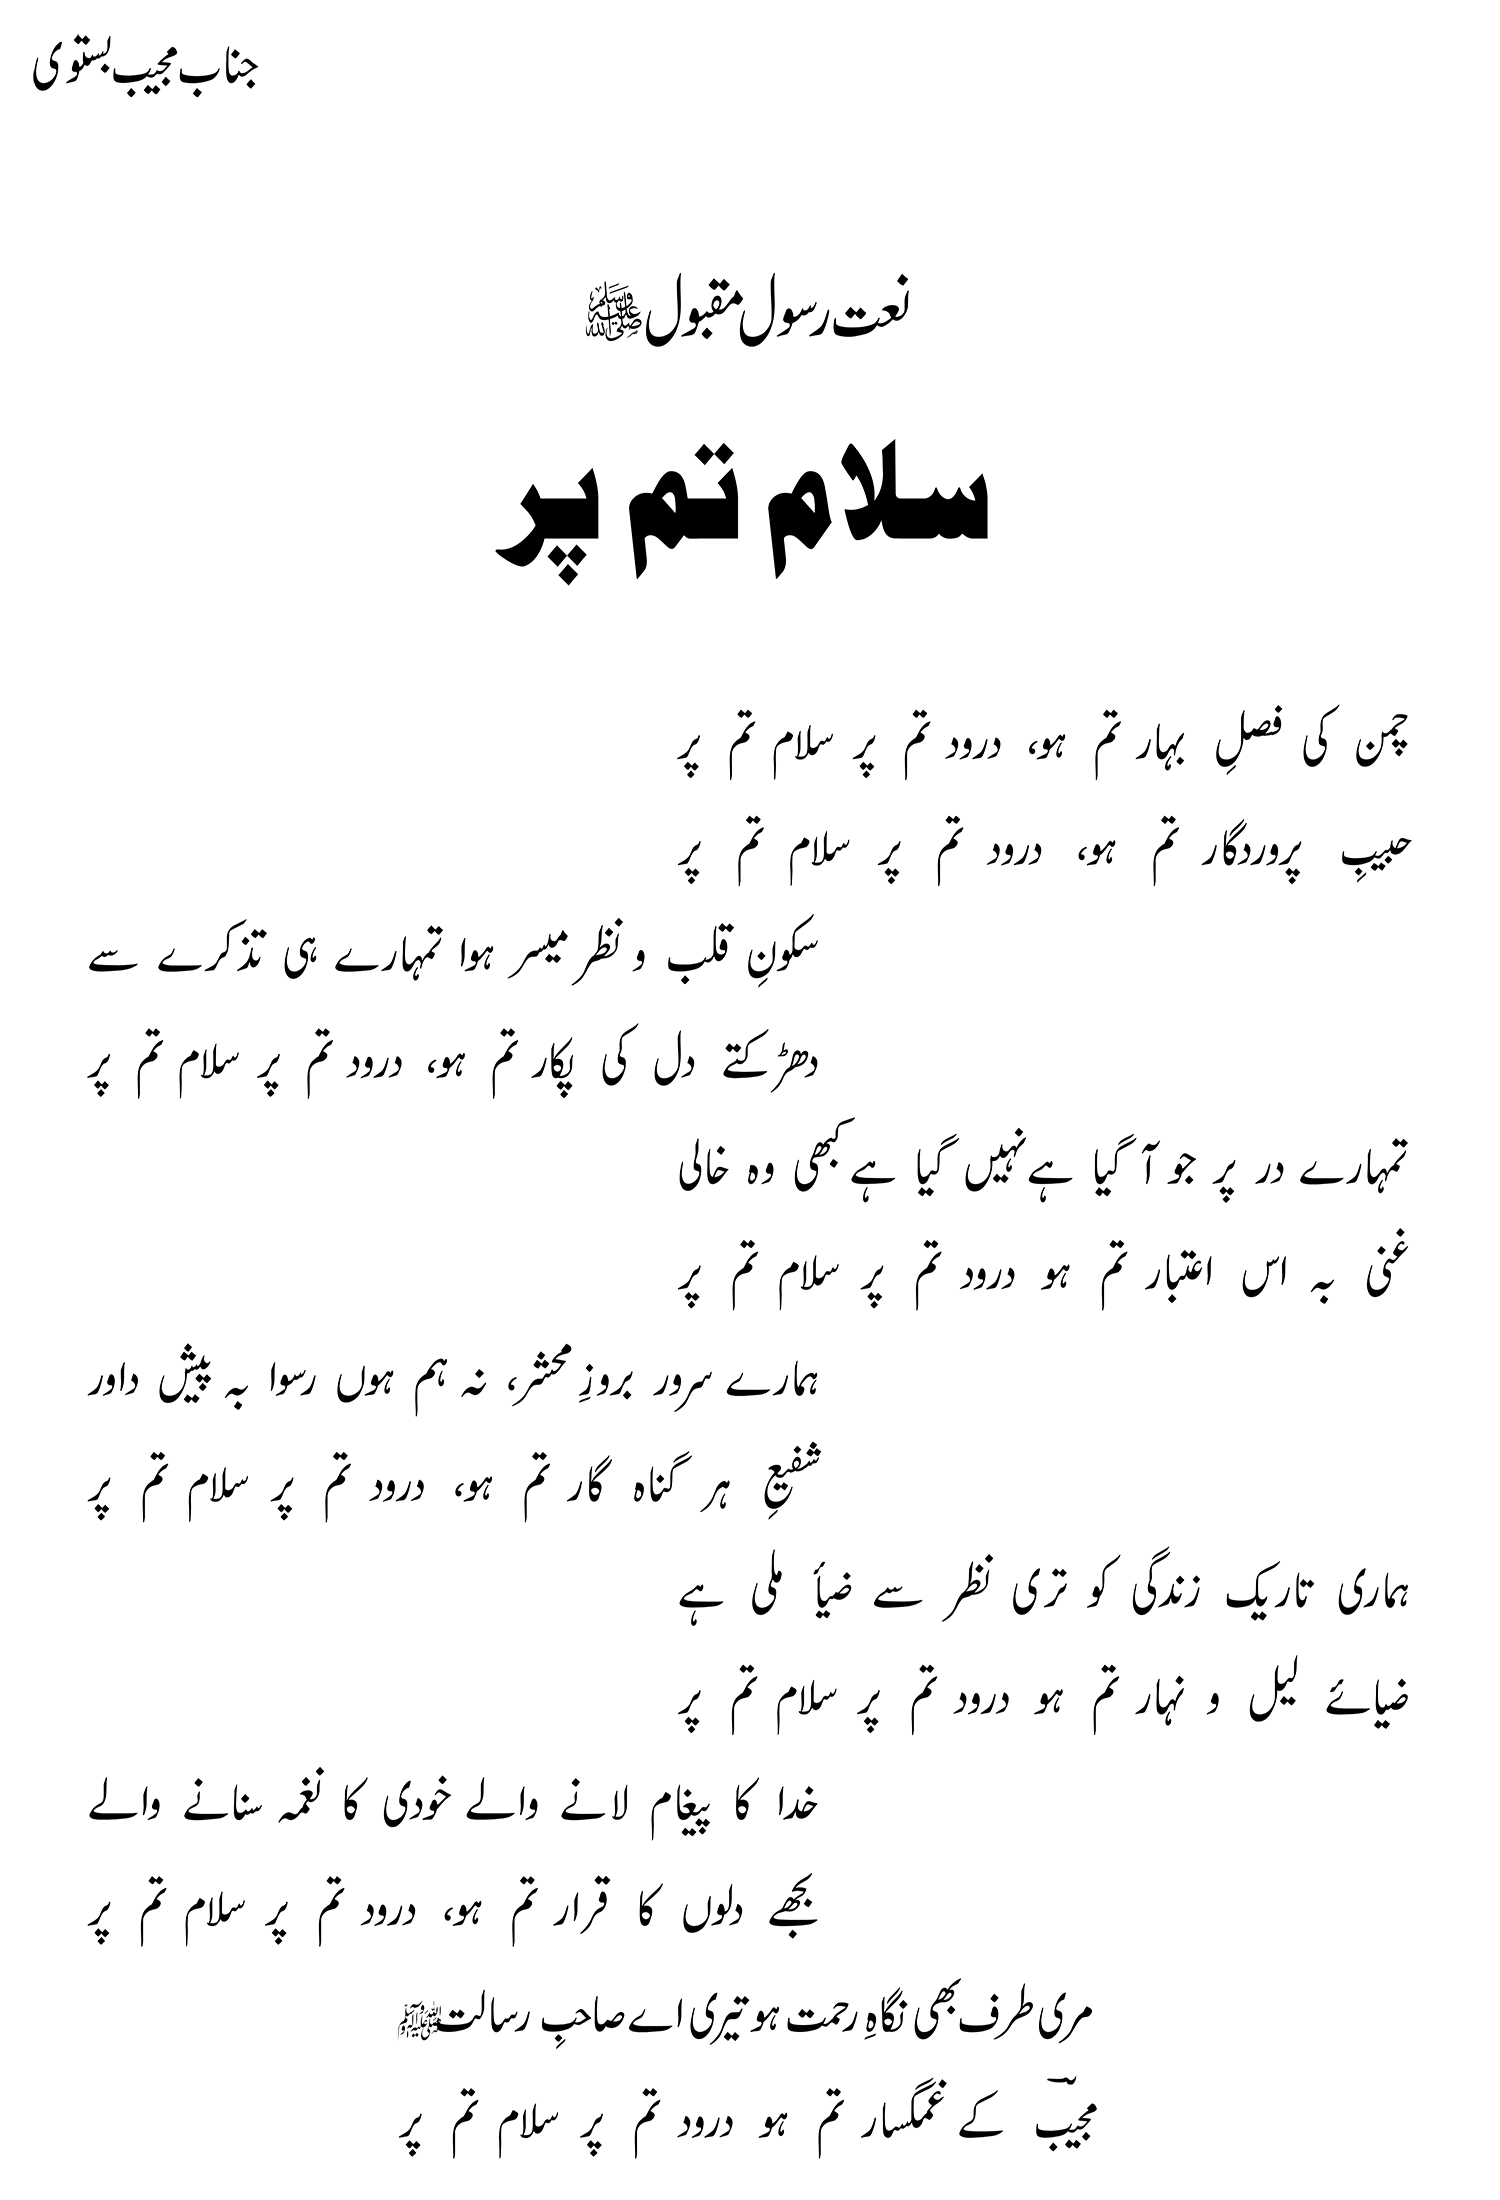 جناب مجیب بستوی
نعت رسول مقبول ﷺ
سلام تم پر
چمن کی فصلِ بہار تم ہو، درود تم پر سلام تم پر
حبیبِ پروردگار تم ہو، درود تم پر سلام تم پر
سکونِ قلب و نظر میسر ہوا تمہارے ہی تذکرے سے
دھڑکتے دل کی پکار تم ہو، درود تم پر سلام تم پر
تمہارے در پر جو آ گیا ہے نہیں گیا ہے کبھی وہ خالی
غنی بہ اس اعتبار تم ہو درود تم پر سلام تم پر
ہمارے سرور بروزِ محشر، نہ ہم ہوں رسوا بہ پیش داور
شفیعِ ہر گناہ گار تم ہو، درود تم پر سلام تم پر
ہماری تاریک زندگی کو تری نظر سے ضیأ ملی ہے
ضیائے لیل و نہار تم ہو درود تم پر سلام تم پر
خدا کا پیغام لانے والے خودی کا نغمہ سنانے والے
بجھے دلوں کا قرار تم ہو، درود تم پر سلام تم پر
مری طرف بھی نگاہِ رحمت ہو تیری اے صاحبِ رسالت ﷺ
مجیبؔ کے غمگسار تم ہو درود تم پر سلام تم پر